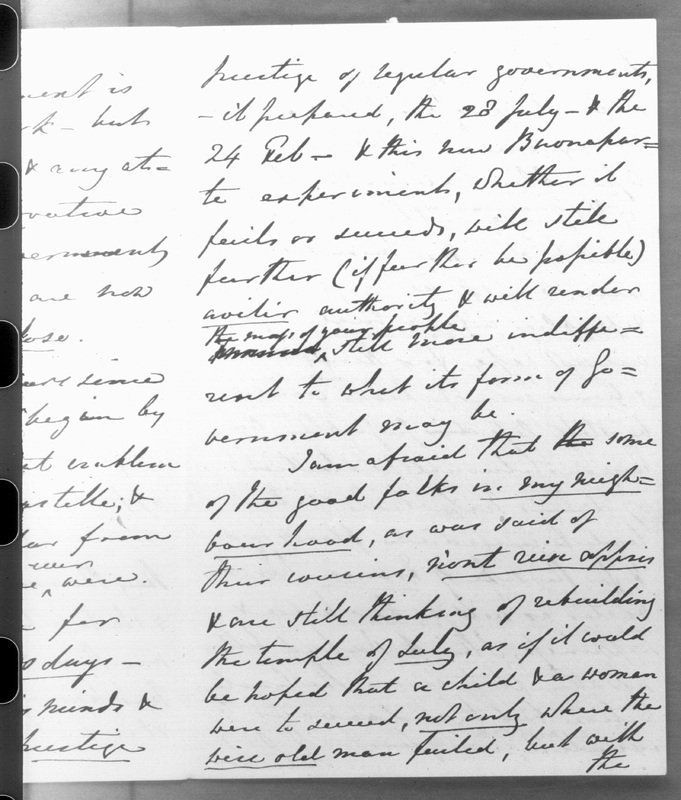 ment is
rk - but
& any at=
vative
vernments
are now
lose.
ears since
began by
at emblem
astille; &
lar from
ever
e ^ were.
e for
o days -
s minds &
prestige
prestige of regular governments,
- it prepared, the 28 July - & the
24 Feb - & this new Buonapar=
te experiments, whether it
fails or succeeds, will still
further (if further be possible)
avilir authority & will render
the mass of your people
^ still more indiffe=
rent to what its form of Go=
vernment may be.
I am afraid that the some
of the good folks in my neigh=
bourhood, as was said of
their cousins, n'ont rien appris
& are still thinking of rebuilding
the temple of July, as if it could
be hoped that a child & a woman
were to succeed, not only where the
wise old man failed, but with
the